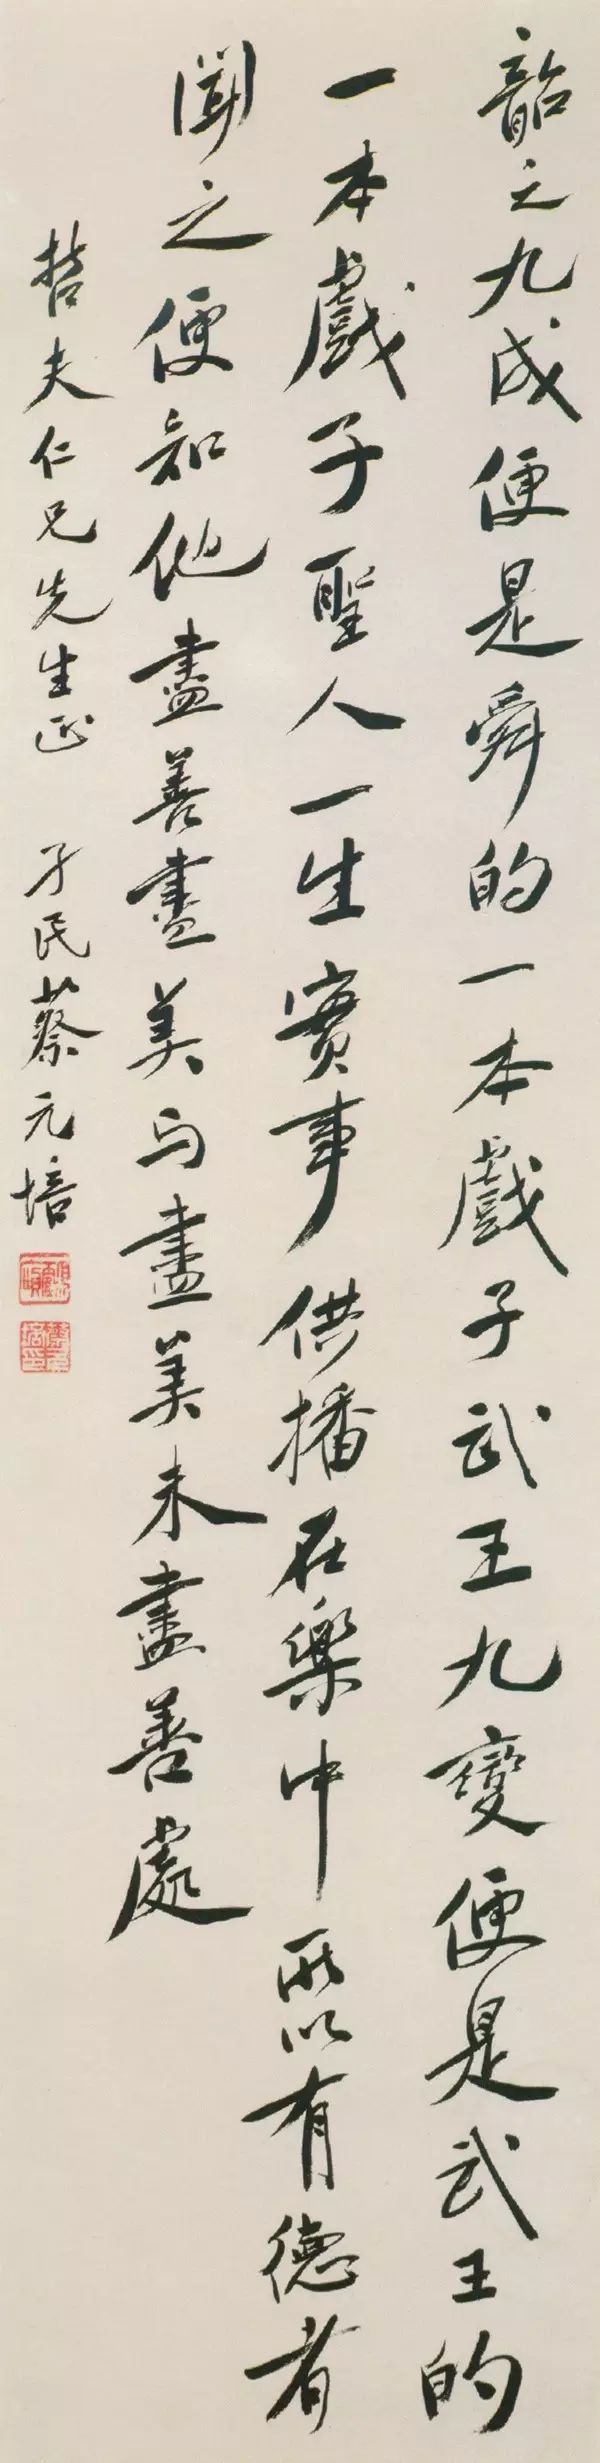 韶之九成便是舜的一本戲子武王九變便是武王的
一本戲子聖人一生實事俱播在樂中所以有德者
聞之便知他盡善盡美与盡美未盡善處
哲夫仁兄先生正 孑民蔡元培